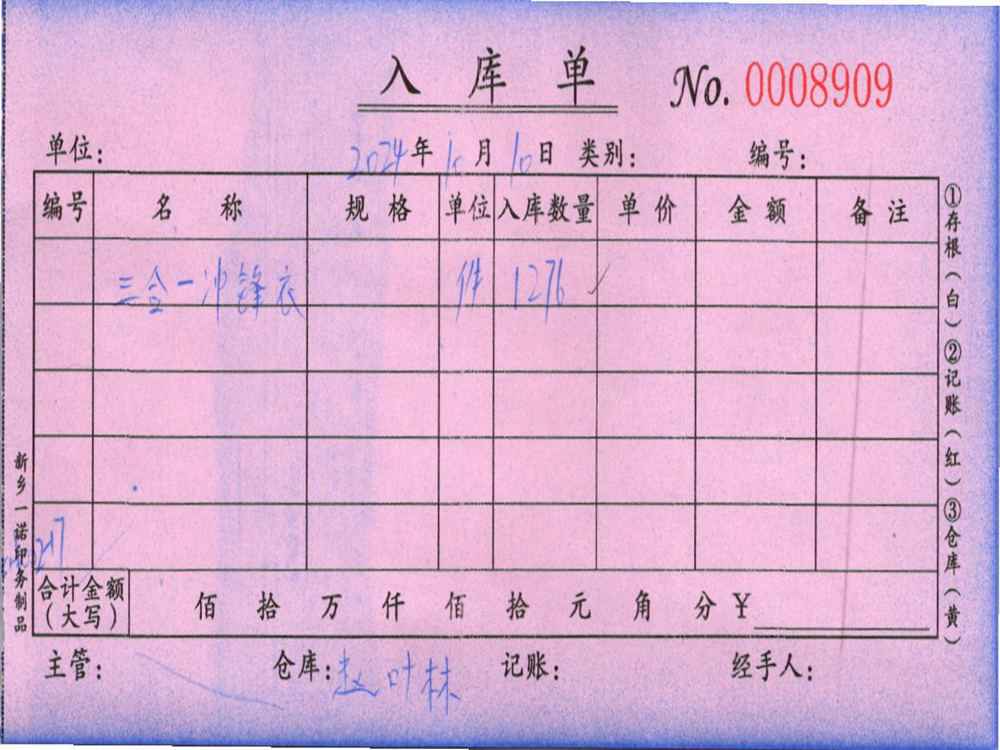 入库单 No. 0008909
单位： 2024年10月10日 类别： 编号：
编号 名称 规格 单位 入库数量 单价 金额 备注
三合一冲锋衣 件 1276
合计金额（大写） 佰 拾 万 仟 佰 拾 元 角 分 ¥
主管： 仓库：赵叶林 记账： 经手人：
①存根（白）②记账（红）③仓库（黄）
新乡一诺印务制品